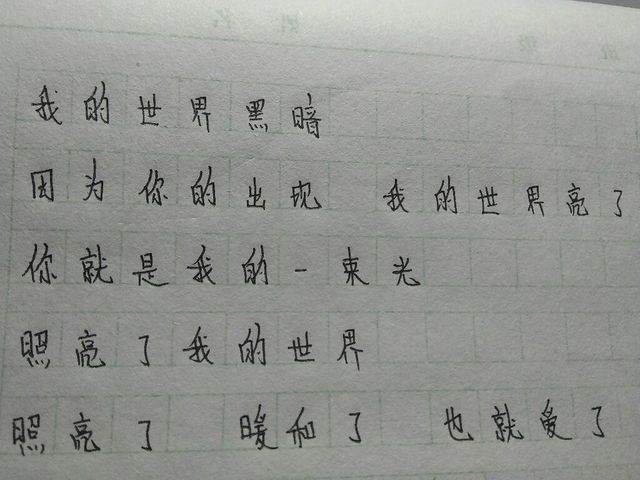 我的世界黑暗
因为你的出现 我的世界亮了
你就是我的一束光
照亮了我的世界
照亮了 暖和了 也就爱了